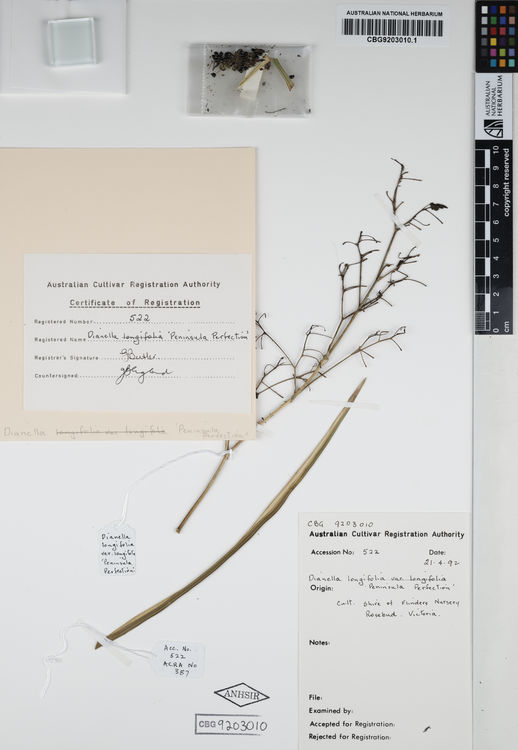 AUSTRALIAN NATIONAL HERBARIUM
CBG9203010.1
AUSTRALIAN
NATIONAL
HERBARIUM
copyright reserved
10
9
8
7
6
5
4
3
2
1
0
cm
Australian Cultivar Registration Authority
Certificate of Registration
Registered Number 522
Registered Name Dianella longifolia 'Peninsula Perfection'
Registrar's Signature
Countersigned
Dianella longifolia var longifolia 'Peninsula
Perfection'
Dianella
longifolia
var. longifolia
'Peninsula
Perfection'
Acc. No.
522
ACRA No
387
ANHSIR
CBG 9203010
CBG 9203010
Australian Cultivar Registration Authority
Accession No: 522 Date:
21.4.92
Dianella longifolia var. longifolia
Origin: 'Peninsula Perfection'
Cult. Shire of Flinders Nursery
Rosebud. Victoria.
Notes:
File:
Examined by:
Accepted for Registration:
Rejected for Registration: